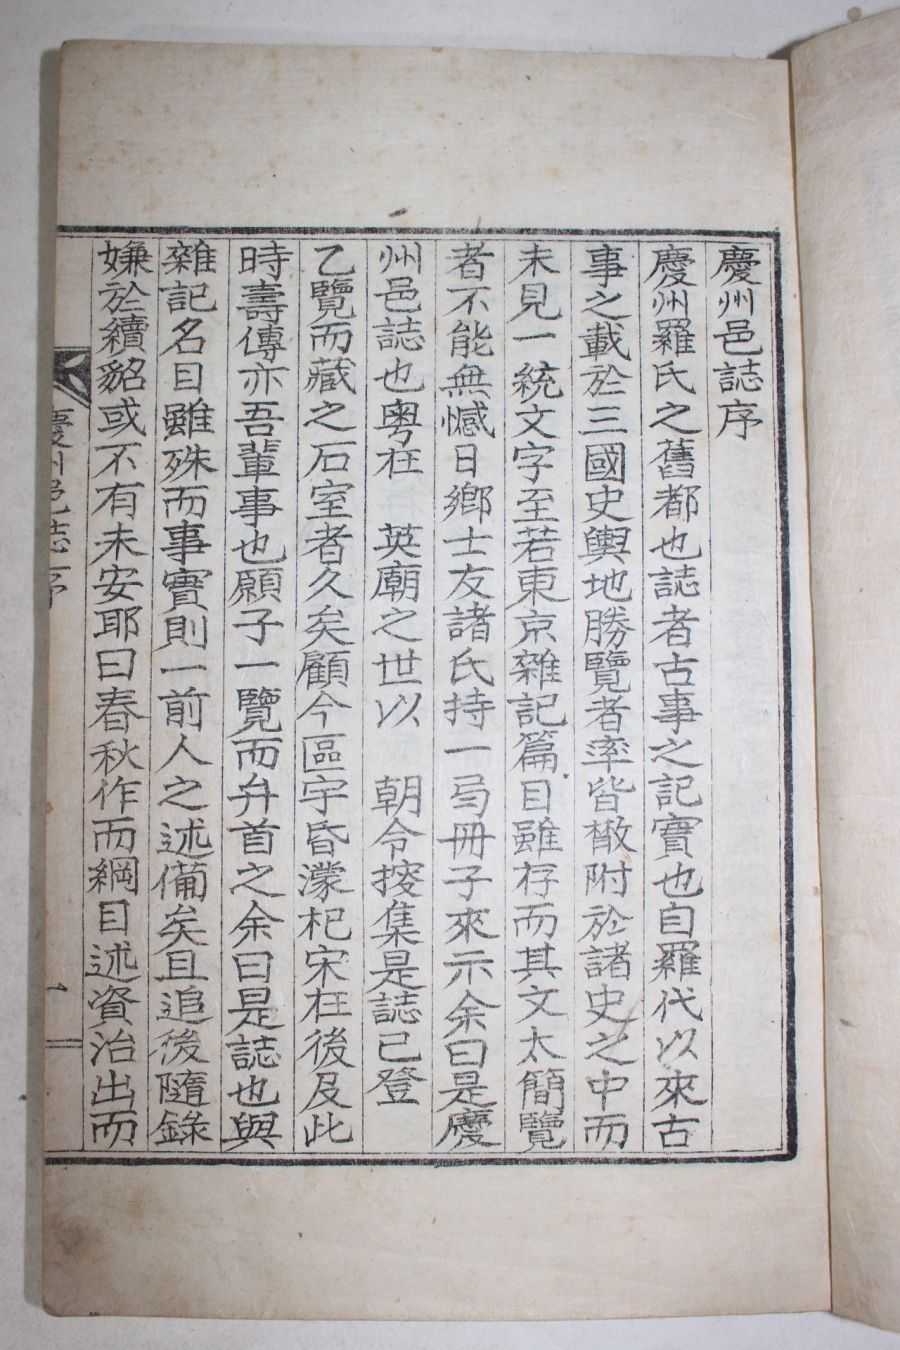 慶州邑誌序
慶州羅氏之舊都也誌者古事之記實也自羅代以來古
事之載於三國史輿地勝覽者率皆檄附於諸史之中而
未見一統文字至若東京雜記篇目雖存而其文太簡覽
者不能無憾日鄕士友諸氏持一弓冊子來示余曰是慶
州邑誌也粤在 英廟之世以 朝令按集是誌已登
乙覽而藏之石室者久矣顧今區宇昏濛杞宋在後及此
時壽傳亦吾輩事也願子一覽而弁首之余曰是誌也與
雜記名目雖殊而事實則一前人之述備矣且追後隨錄
嫌於續貂或不有未安耶曰春秋作而綱目述資治出而
慶州邑誌 序